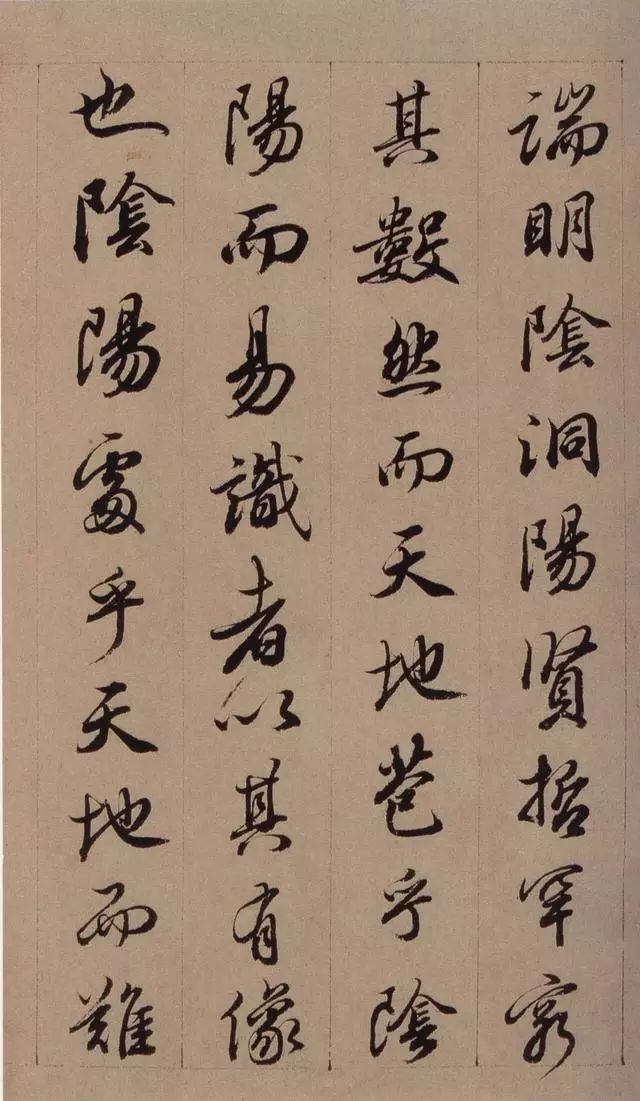 端明陰洞陽賢哲罕窮
其數然而天地苞乎陰
陽而易識者以其有像
也陰陽處乎天地而難